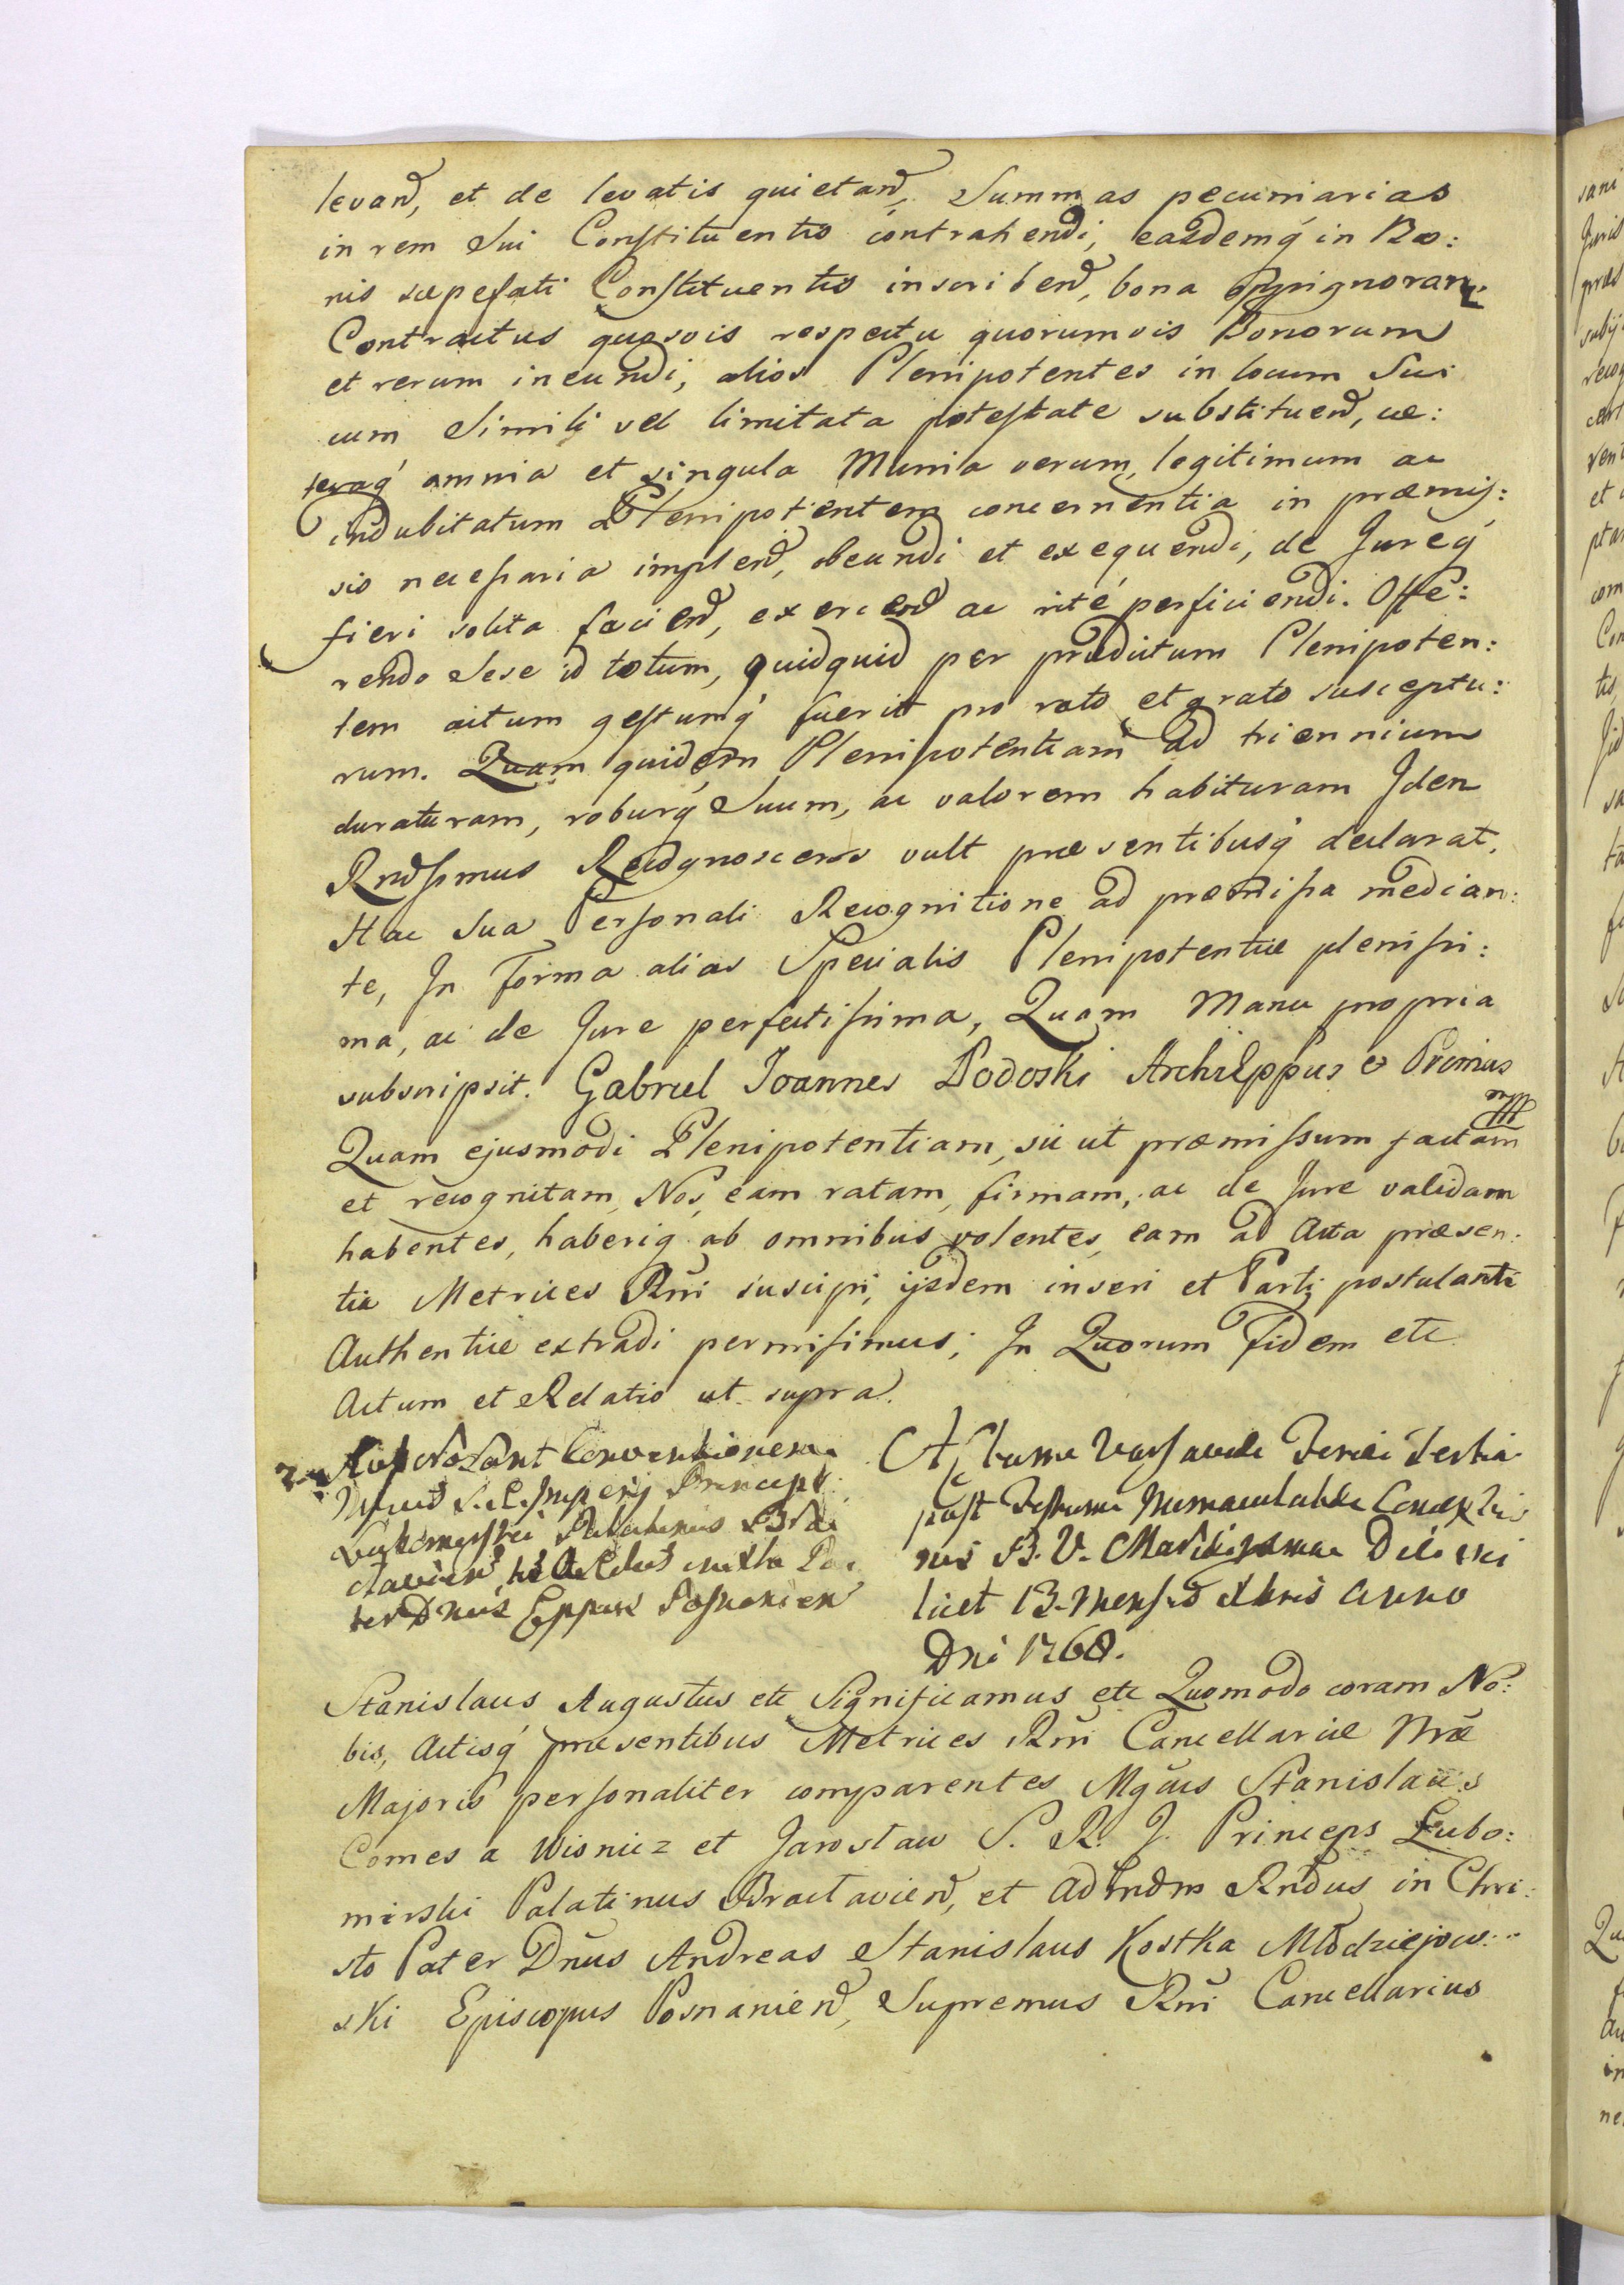 levand, et de levatis quietand, Summas pecuniarias
in rem Sui Constituentis contrahendi, easdemq́ in Bo:
nis sæpefati Constituentis inscribend, bona oppignorare
Contractus quosvis respectu quorumvis Bonorum
et rerum ineundi, alios Plenipotentes in locum Sui
cum Simili vel limitata potestate substituend, cæ:
teraq́ omnia et singula Munia verum, legitimum ac
indubitatum Plenipotentem concernentia in præmis:
sis necessaria implend, obeundi et exequendi, de Jureq́
fieri solita faciend, exercend ac rité perficiendi. Offe:
rendo Sese id totum, quidquid per prædictum Plenipoten:
tem actum gestumq́ fuerit pro rato et grato susceptu:
rum. Quam quidem Plenipotentiam ad triennium
duraturam, roburq́ Suum, ac valorem habituram Idem
Rndssmus Recognoscens vult præsentibusq́ declarat.
Hac Sua Personali Recognitione ad præmissa median:
te, In Forma alias Specialis Plenipotentiæ plenissi:
ma, ac de Jure perfectissima, Quam Manu propria
subscripsit. Gabriel Joannes Podoski Archieppus & Primas
mpp
Quam ejusmodi Plenipotentiam, sic ut præmissum factam
et recognitam, Nos, eam ratam, firmam, ac de Jure validam
habentes, haberiq́ ab omnibus volentes, eam ad Acta præsen:
tia Metrices Rni suscipi, ijsdem inseri et Parti postulanti
Authenticè extradi permisimus; In Quorum Fidem etc
Actum et Relatio ut supra.
Roborant Conventionem
S. R. Imperij Princeps
Lubomirski Palatinus Bra
clavien, et
ter Dnus Eppus Posnanien
Actum Varsaviæ Feria Tertia
post Festum Immaculatæ Conceptio
nis B. V. Mariæ Die sci
licet 13. Mensis Xbris Anno
Dni 1768.
Stanislaus Augustus etc Significamus etc Quomodo coram No:
bis, Actisq́ præsentibus Metrices Rni Cancellariæ Nræ
Majoris personaliter comparentes Mgcus Stanislaus
Comes a Wisnicz et Jaroslaw S. R. J. Princeps Lubo:
mirski Palatinus Braclaviend, et Adm̃dm Rndus in Chri:
sto Pater Dnus Andreas Stanislaus Kostka Młodziejow:
ski Episcopus Posnaniend, Supremus Rni Cancellarius